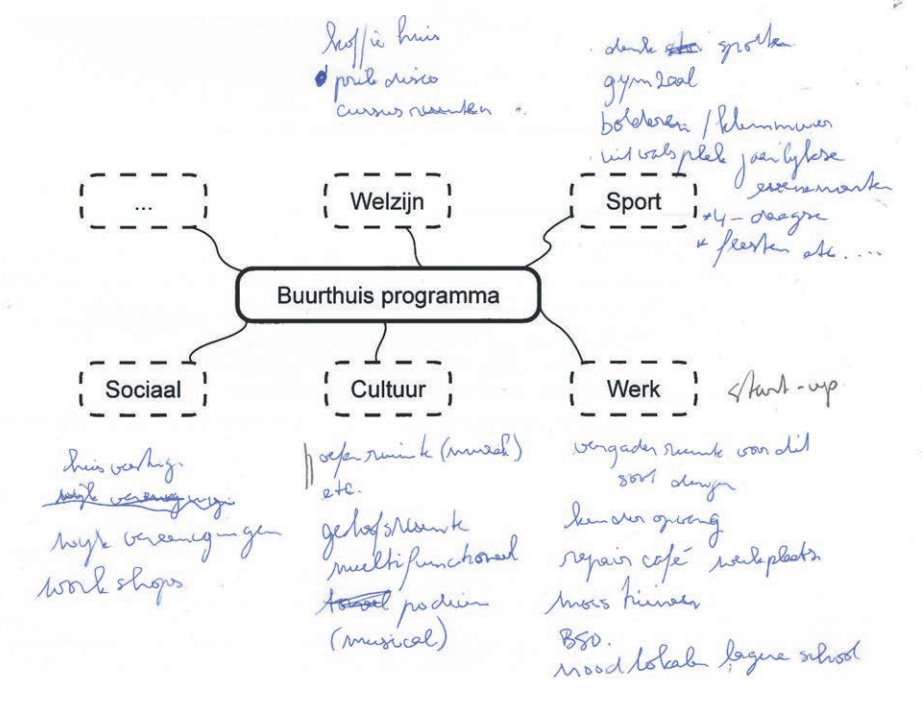 koffie huis
prik disco
cursus
sporten
gymzaal
bolderen / klimmuur
uitvalsplek jaarlijkse
evenementen
*4-daagse
* feesten etc....
...
Welzijn
Sport
Buurthuis programma
Sociaal
Cultuur
Werk
start-up
huisvesting
wijk verenigingen
workshops
oefenruimte (muziek)
etc.
geloofsruimte
multifunctioneel
podium
(musical)
vergaderruimte voor dit
soort dingen
kinderopvang
repair café werkplaats
BSO.
noodlokalen lagere school